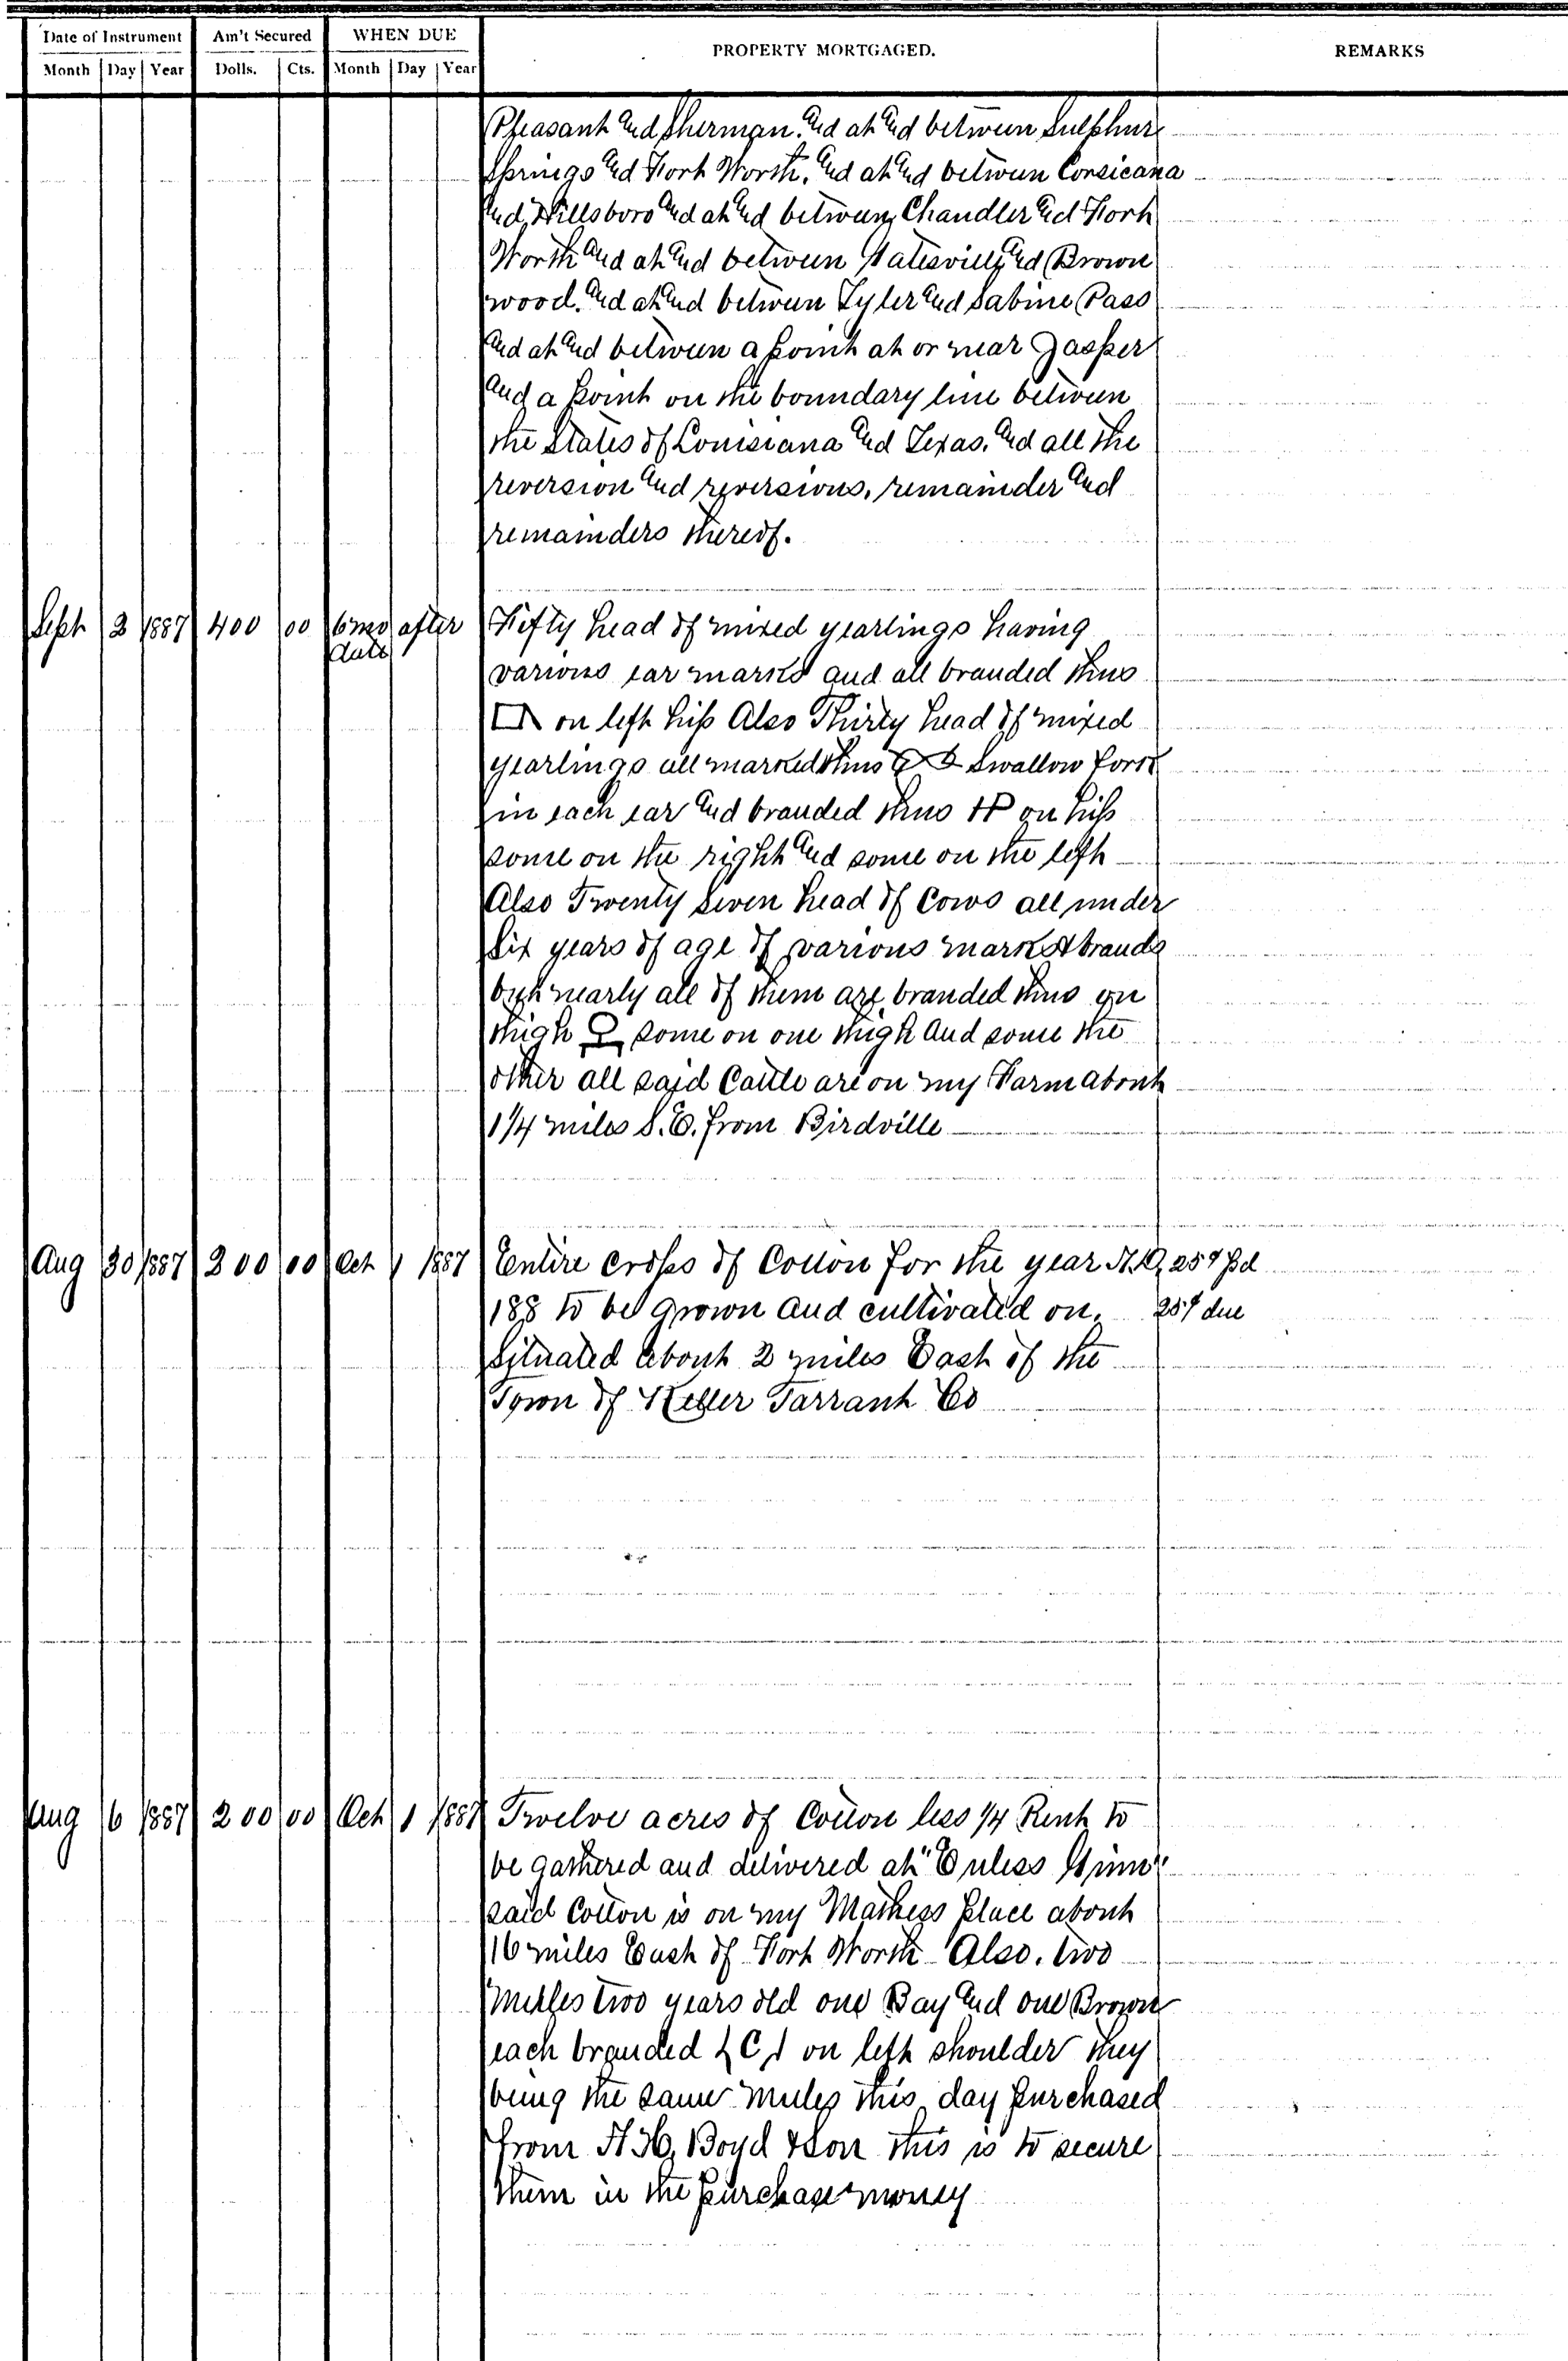 Date of Instrument Am't Secured WHEN DUE PROPERTY MORTGAGED. REMARKS
Month Day Year Dolls. Cts. Month Day Year
Pleasant and Sherman. and at and between Sulphur
Springs and Fort Worth. and at and between Corsicana
and Hillsboro and at and between Chandler and Fort
Worth and at and between Gatesville and Brown
wood. and at and between Tyler and Sabine Pass
and at and between a point at or near Jasper
and a point on the boundary line between
the States of Louisiana and Texas. and all the
reversion and reversions, remainder and
remainders thereof.
Sept 3 1887 400 00 6 mo after Fifty head of mixed yearlings having
date
various ear marks and all branded thus
on left hip Also Thirty head of mixed
yearlings all marked thus Swallow Fork
in each ear and branded thus HP on hip
some on the right and some on the left
Also Twenty Seven head of Cows all under
Six years of age of various marks & brands
but nearly all of them are branded thus on
thigh some on one thigh and some the
other all said Cattle are on my Farm about
1 1/4 miles S.E. from Birdville
Aug 30 1887 200 00 Oct 1 1887 Entire crops of Cotton for the year A.D. 25¢ pd
188 to be grown and cultivated on. 25¢ due
Situated about 2 miles East of the
Town of Keller Tarrant Co
Aug 6 1887 200 00 Oct 1 1887 Twelve acres of Cotton less 1/4 Rent to
be gathered and delivered at "Euless Ginn"
said Cotton is on my place about
16 miles East of Fort Worth Also. two
Mules two years old one Bay and one Brown
each branded on left shoulder they
being the same mules this day purchased
from A. H. Boyd & Son this is to secure
them in the purchase money